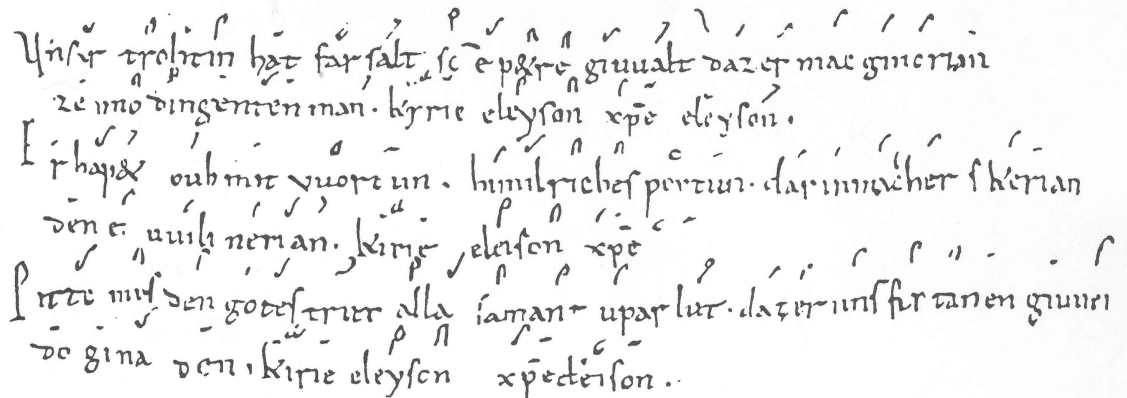 Unsar trohtin hat farsalt sc̄e p&re giuualt daz er mac ginerian
ze imo dingenten man. kyrie eleyson xp̄e eleyson.
Er hap& ouh mit vuortun. himilriches portun. dar in mach er skerian
den er uuili nerian. kirie eleison xp̄e
Pittemes den gotes trut alla samant upar lut. daz er uns firtanen giuuer
do ginaden. kirie eleyson xp̄e eleison.